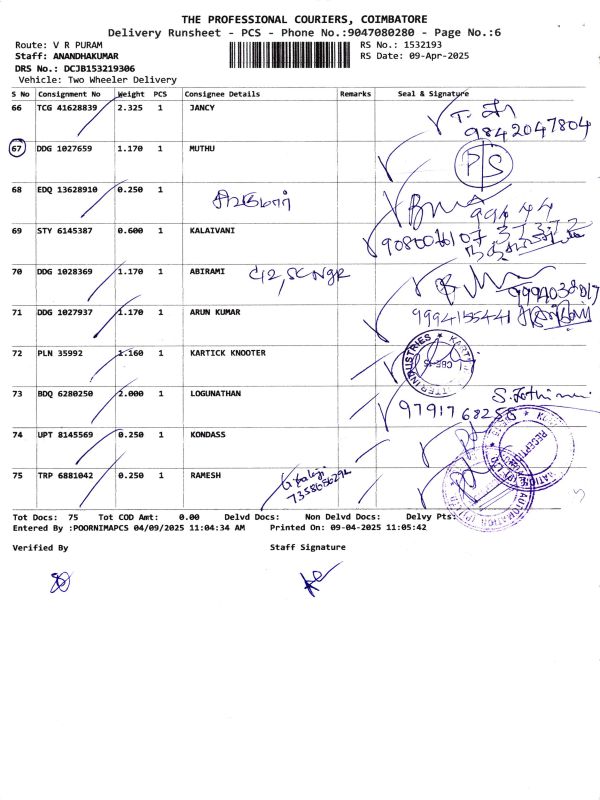 THE PROFESSIONAL COURIERS, COIMBATORE
Delivery Runsheet - PCS - Phone No.:9047080280 - Page No.:6
Route: V R PURAM
RS No.: 1532193
Staff: ANANDHAKUMAR
RS Date: 09-Apr-2025
DRS No.: DCJB153219306
Vehicle: Two Wheeler Delivery
S No Consignment No Weight PCS Consignee Details Remarks Seal & Signature
66 TCG 41628839 2.325 1 JANCY
9842047804
67 DDG 1027659 1.170 1 MUTHU
P S
68 EDQ 13628910 0.250 1
69 STY 6145387 0.600 1 KALAIVANI
70 DDG 1028369 1.170 1 ABIRAMI C12, SC NGR
71 DDG 1027937 1.170 1 ARUN KUMAR 9994155441
72 PLN 35992 1.160 1 KARTICK KNOOTER
73 BDQ 6280250 2.000 1 LOGUNATHAN
74 UPT 8145569 0.250 1 KONDASS
RECEPTION
75 TRP 6881042 0.250 1 RAMESH
Tot Docs: 75 Tot COD Amt: 0.00 Delvd Docs: Non Delvd Docs: Delvy Pts:
Entered By :POORNIMAPCS 04/09/2025 11:04:34 AM Printed On: 09-04-2025 11:05:42
Verified By Staff Signature